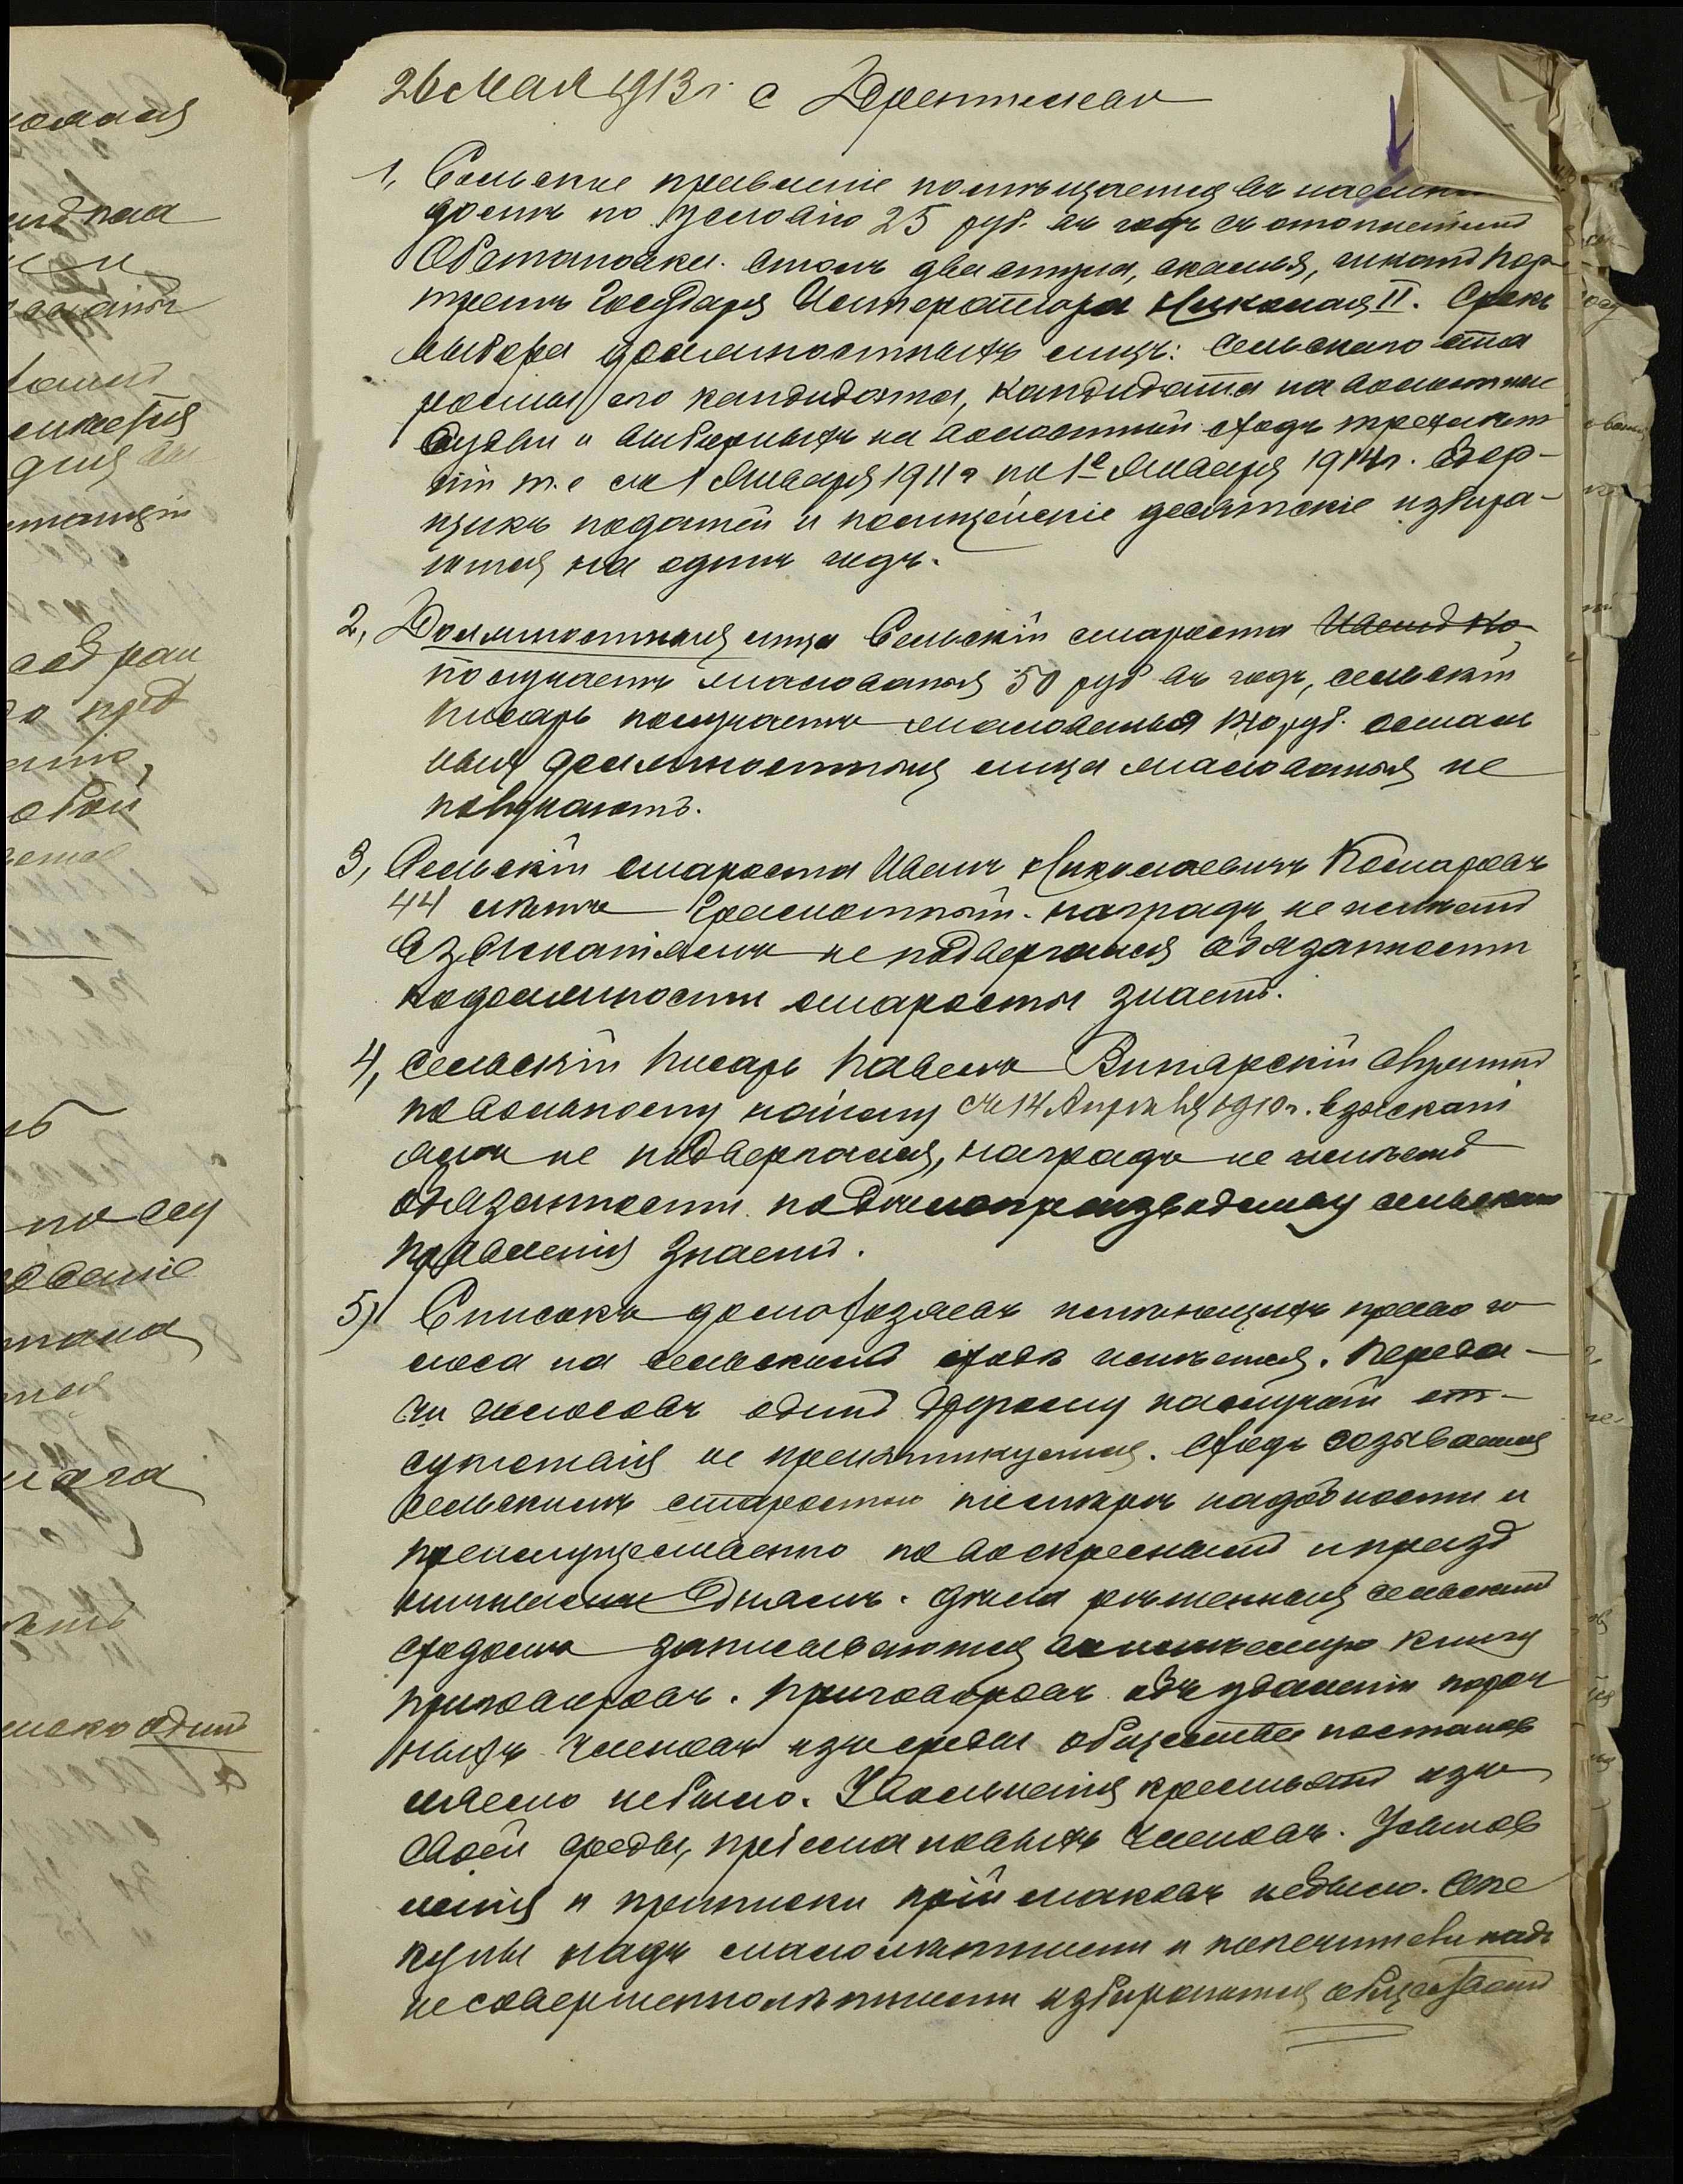 26 Мая 1913 г. с
1, Сельское правленіе помѣщается въ
домѣ по условію 25 руб. въ годъ съ отопленіемъ
Обстановка. столъ два стула, скамья, шкапъ Пор-
третъ Государя Императора Николая II. Срокъ
выбора должностныхъ лицъ: Сельскаго ста
росты его кандидата, Кандидата на волостные
судьи и выборныхъ на волостный сходъ трехлѣт
ній т.е съ 1 Января 1911 г по 1е Января 1914 г. Сбор-
щикъ податей и полицейскіе десятскіе избира-
ются на одинъ годъ.
2, Должностныя лица Сельскій староста
получаетъ жалованья 50 руб въ годъ, сельскій
писарь получаетъ жалованья руб. осталь
ныя должностныя лица жалованья не
получаютъ.
3, Сельскій староста Иванъ Николаевичъ Комаровъ
44 лѣтъ Грамотный. наградъ не имѣетъ
взысканіямъ не подвергался обязанности
по должности старосты знаетъ.
4, Сельскій писарь Павелъ Винярскій служитъ
по вольному найму съ 14 Апрѣля 1910 г. взыскані
ямъ не подвергался, наградъ не имѣетъ
обязанности по дѣлопроизводству сельскаго
правленія знаетъ.
5) Списокъ домохозяевъ имѣющихъ право го
лоса на сельскомъ сходѣ имѣется. Переда-
чи голосовъ одинъ другому на случай от-
сутствія не практикуется. Сходъ созывается
сельскимъ старостою по мѣрѣ надобности и
преимущественно по воскреснымъ и празд
ничнымъ днямъ. Дѣла рѣшенныя сельскимъ
сходомъ записываются въ имѣемую книгу
приговоровъ. Приговоровъ объ удаленіи пороч
ныхъ членовъ изъ среды общества постанов
ляемо не было. Увольненія крестьянъ изъ
своей среды, пріема новыхъ членовъ. Усынов
ленія и приписки пріймаковъ небыло. Опе
куны надъ малолѣтними и попечители надъ
несовершеннолѣтними избираются обществомъ